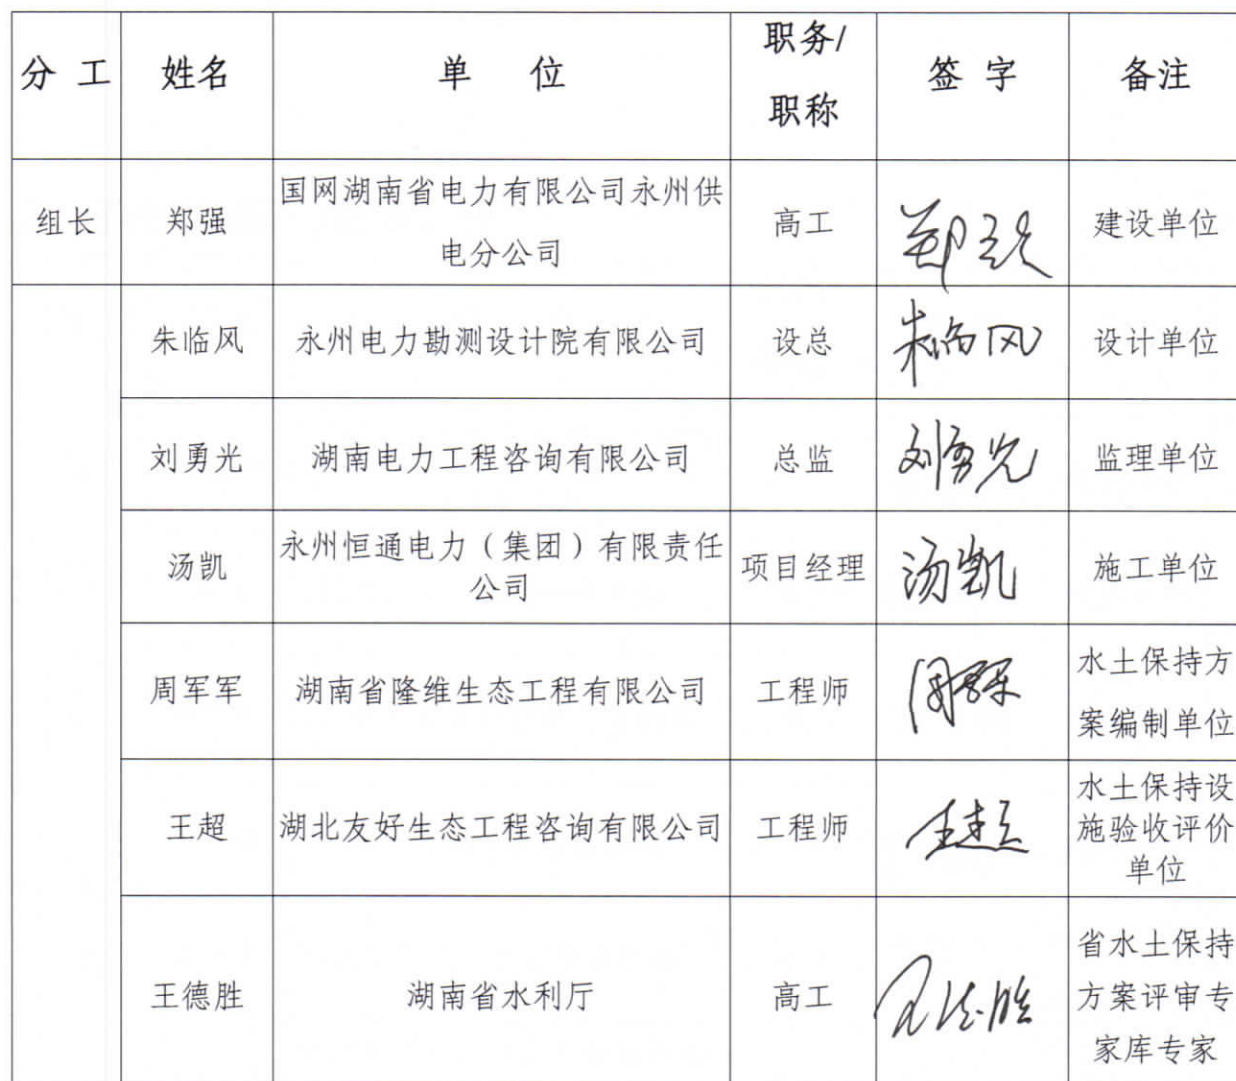 分 工 姓名 单 位 职务/
职称 签 字 备注
组长 郑强 国网湖南省电力有限公司永州供
电分公司 高工 郑强 建设单位
朱临风 永州电力勘测设计院有限公司 设总 朱临风 设计单位
刘勇光 湖南电力工程咨询有限公司 总监 刘勇光 监理单位
汤凯 永州恒通电力（集团）有限责任
公司 项目经理 汤凯 施工单位
周军军 湖南省隆维生态工程有限公司 工程师 周军军 水土保持方
案编制单位
王超 湖北友好生态工程咨询有限公司 工程师 王超 水土保持设
施验收评价
单位
王德胜 湖南省水利厅 高工 王德胜 省水土保持
方案评审专
家库专家